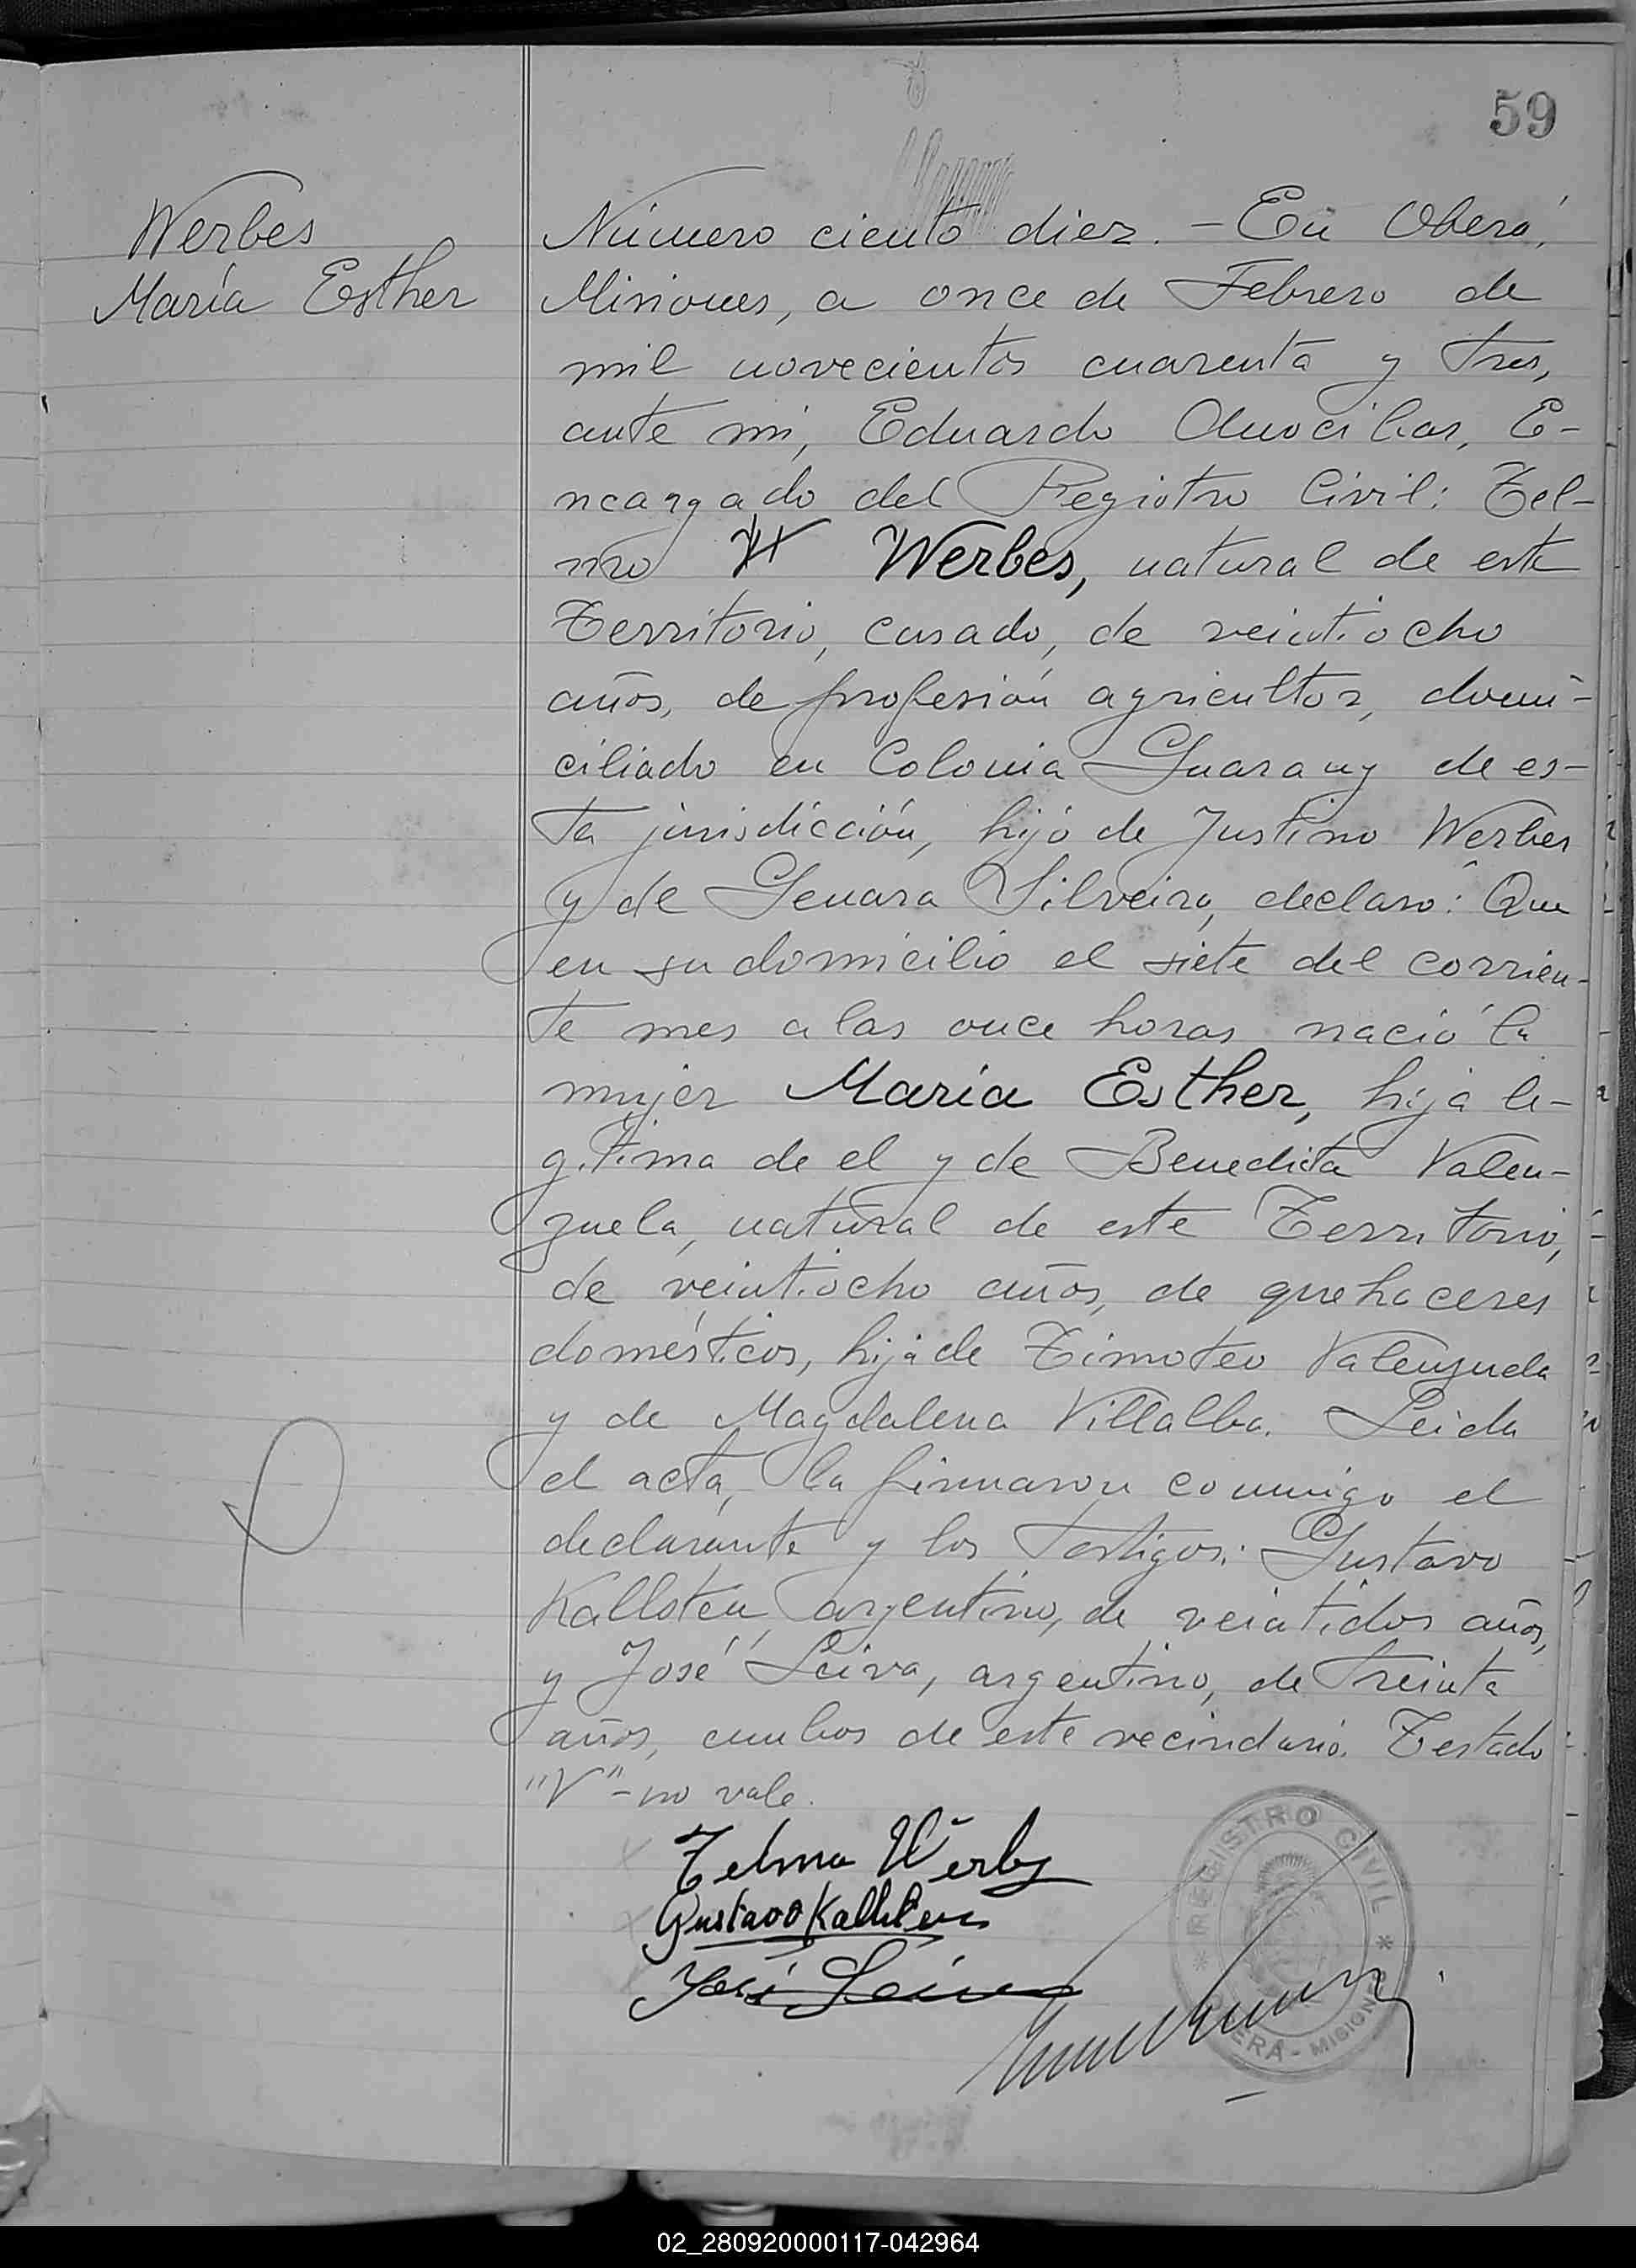 59
Werbes
María Esther
Número ciento diez. - En Oberá,
Misiones, a once de Febrero de
mil novecientos cuarenta y tres,
ante mi, Eduardo, E-
ncargado del Registro Civil: Tel-
mo V Werbes, natural de este
Territorio, casado, de veintiocho
años, de profesión agricultor, domi-
ciliado en Colonia Guarany de es-
ta jurisdicción, hijo de Justino Werbes
y de Genara Silveira, declaró: Que
en su domicilio el siete del corrien-
te mes a las once horas nació la
mujer María Esther, hija le-
gitima de el y de Benedicta Valen-
zuela, natural de este Territorio,
de veintiocho años, de quehaceres
domésticos, hija de Timoteo Valenzuela
y de Magdalena Villalba. Leida
el acta, la firmaron conmigo el
declarante y los testigos: Gustavo
Kallsten, argentino, de veintidos años,
y José Leiva, argentino, de treinta
años, ambos de este vecindario. Testado
"V" - no vale.
Telmo Werbes
Gustavo Kallsten
José Leiva
REGISTRO CIVIL
OBERÁ - MISIONES
02_280920000117-042964